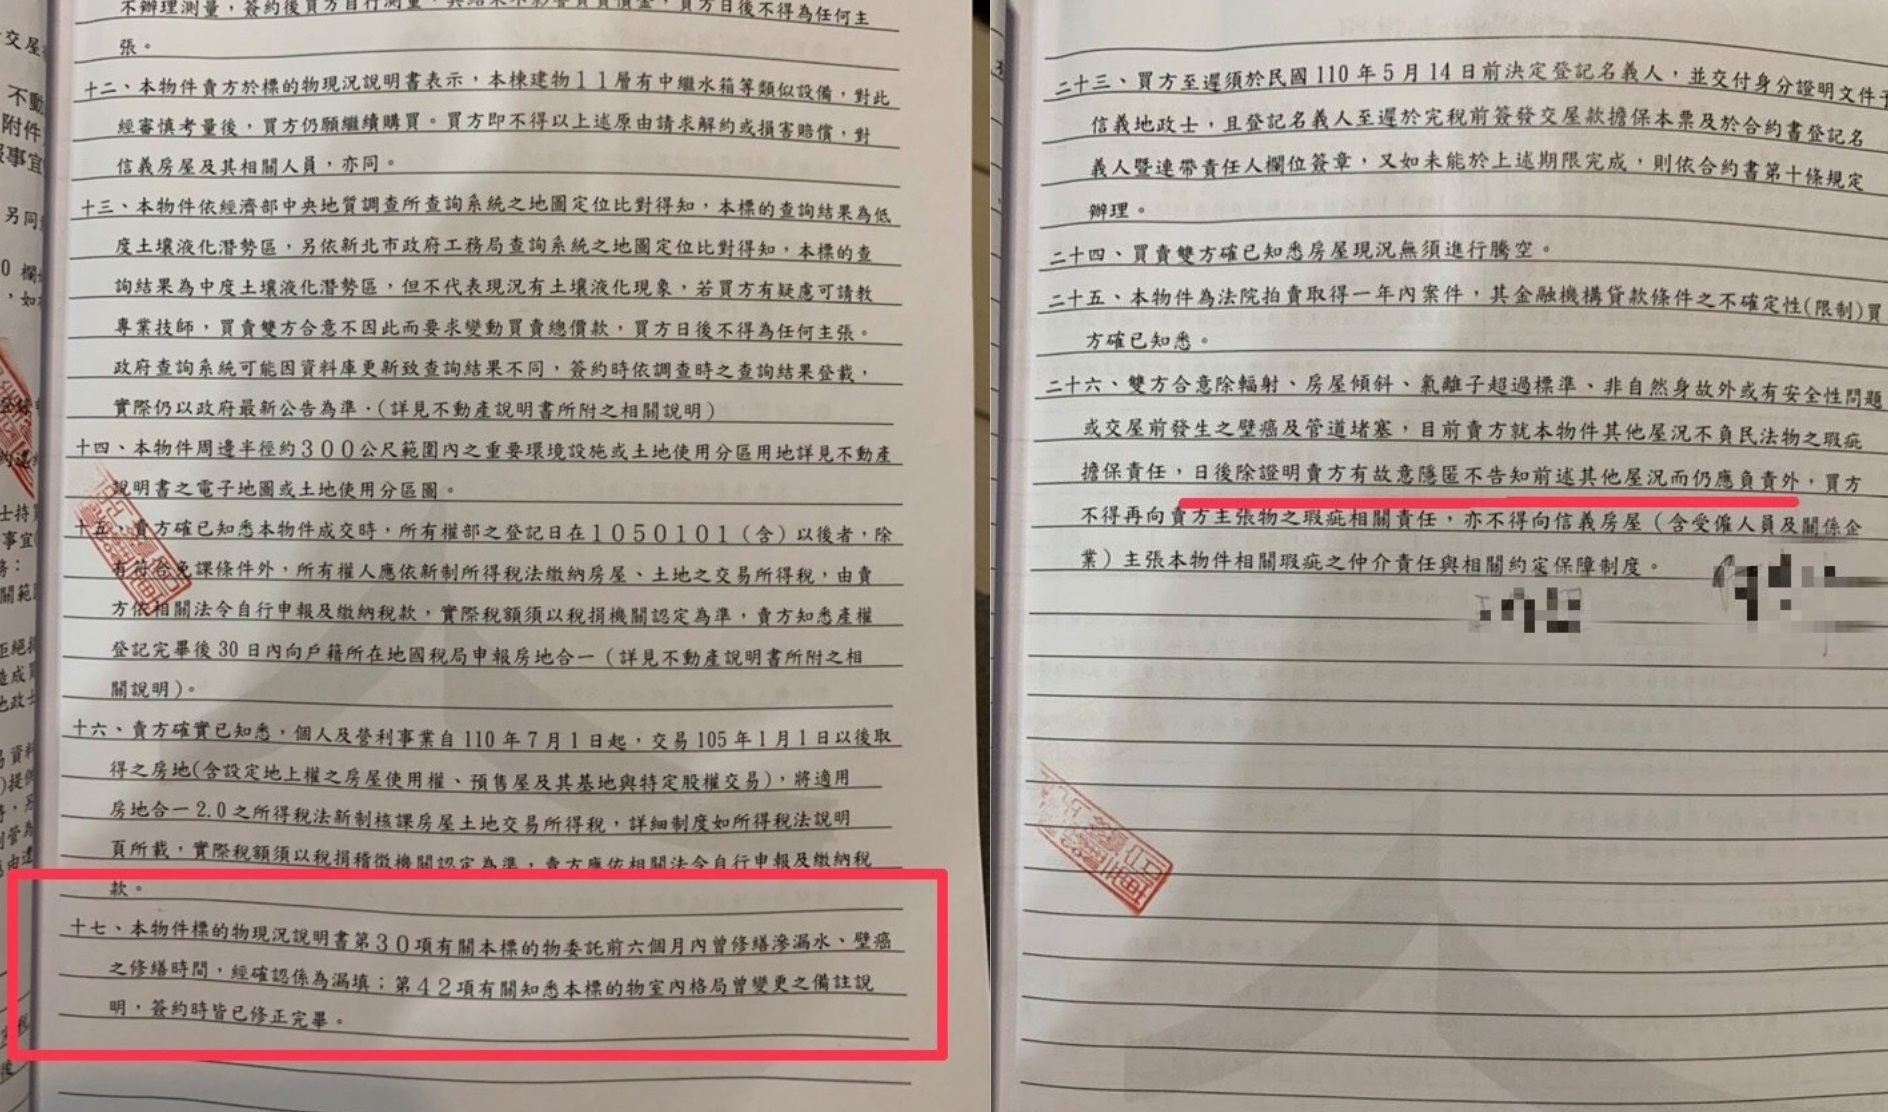 不辦理測量，簽約後買方自行測量，其結果不影響買賣價金，買方日後不得為任何主
張。
十二、本物件賣方於標的物現況說明書表示，本棟建物11層有中繼水箱等類似設備，對此
經審慎考量後，買方仍願繼續購買。買方即不得以上述原由請求解約或損害賠償，對
信義房屋及其相關人員，亦同。
十三、本物件依經濟部中央地質調查所查詢系統之地圖定位比對得知，本標的查詢結果為低
度土壤液化潛勢區，另依新北市政府工務局查詢系統之地圖定位比對得知，本標的之查
詢結果為中度土壤液化潛勢區，但不代表現況有土壤液化現象，若買方有疑慮可請教
專業技師，買賣雙方合意不因此而要求變動買賣總價款，買方日後不得為任何主張。
政府查詢系統可能因資料庫更新致查詢結果不同，簽約時依調查時之查詢結果登載，
實際仍以政府最新公告為準．（詳見不動產說明書所附之相關說明）
十四、本物件周邊半徑約300公尺範圍內之重要環境設施或土地使用分區用地詳見不動產
說明書之電子地圖或土地使用分區圖。
十五、賣方確已知悉本物件成交時，所有權部之登記日在1050101（含）以後者，除
有符合免課條件外，所有權人應依新制所得稅法繳納房屋、土地之交易所得稅，由賣
方依相關法令自行申報及繳納稅款，實際稅額須以稅捐機關認定為準，賣方知悉產權
登記完畢後30日內向戶籍所在地國稅局申報房地合一（詳見不動產說明書所附之相
關說明）。
十六、賣方確實已知悉，個人及營利事業自110年7月1日起，交易105年1月1日以後取
得之房地(含設定地上權之房屋使用權、預售屋及其基地與特定股權交易)，將適用
房地合一2.0之所得稅法新制核課房屋土地交易所得稅，詳細制度如所得稅法說明
頁所載，實際稅額須以稅捐稽徵機關認定為準，賣方應依相關法令自行申報及繳納稅
款。
十七、本物件標的物現況說明書第30項有關本標的物委託前六個月內曾修繕滲漏水、壁癌
之修繕時間，經確認係為漏填；第42項有關知悉本標的物室內格局曾變更之備註說
明，簽約時皆已修正完畢。
二十三、買方至遲須於民國110年5月14日前決定登記名義人，並交付身分證明文件予
信義地政士，且登記名義人至遲於完稅前簽發交屋款擔保本票及於合約書登記名
義人暨連帶責任人欄位簽章，又如未能於上述期限完成，則依合約書第十條規定
辦理。
二十四、買賣雙方確已知悉房屋現況無須進行騰空。
二十五、本物件為法院拍賣取得一年內案件，其金融機構貸款條件之不確定性(限制)買
方確已知悉。
二十六、雙方合意除輻射、房屋傾斜、氯離子超過標準、非自然身故外或有安全性問題
或交屋前發生之壁癌及管道堵塞，目前賣方就本物件其他屋況不負民法物之瑕疵
擔保責任，日後除證明賣方有故意隱匿不告知前述其他屋況而仍應負責外，買方
不得再向賣方主張物之瑕疵相關責任，亦不得向信義房屋（含受僱人員及關係企
業）主張本物件相關瑕疵之仲介責任與相關約定保障制度。